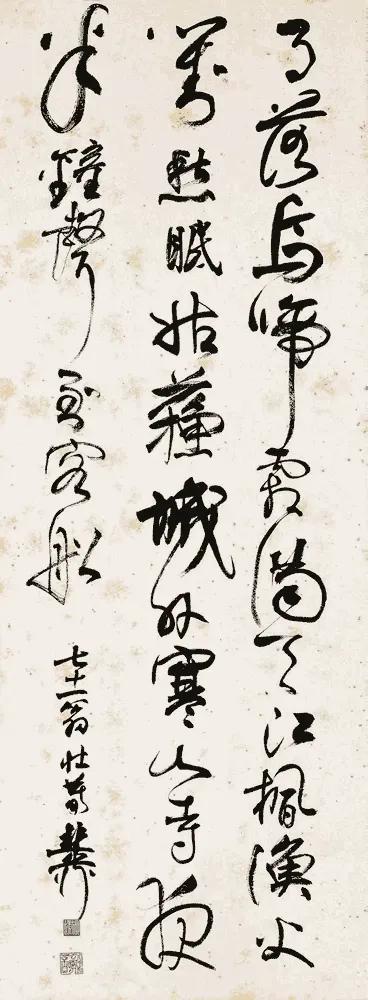 月落烏啼霜滿天江楓漁火
對愁眠姑蘇城外寒山寺夜
半鐘聲到客船
七十翁壯暮